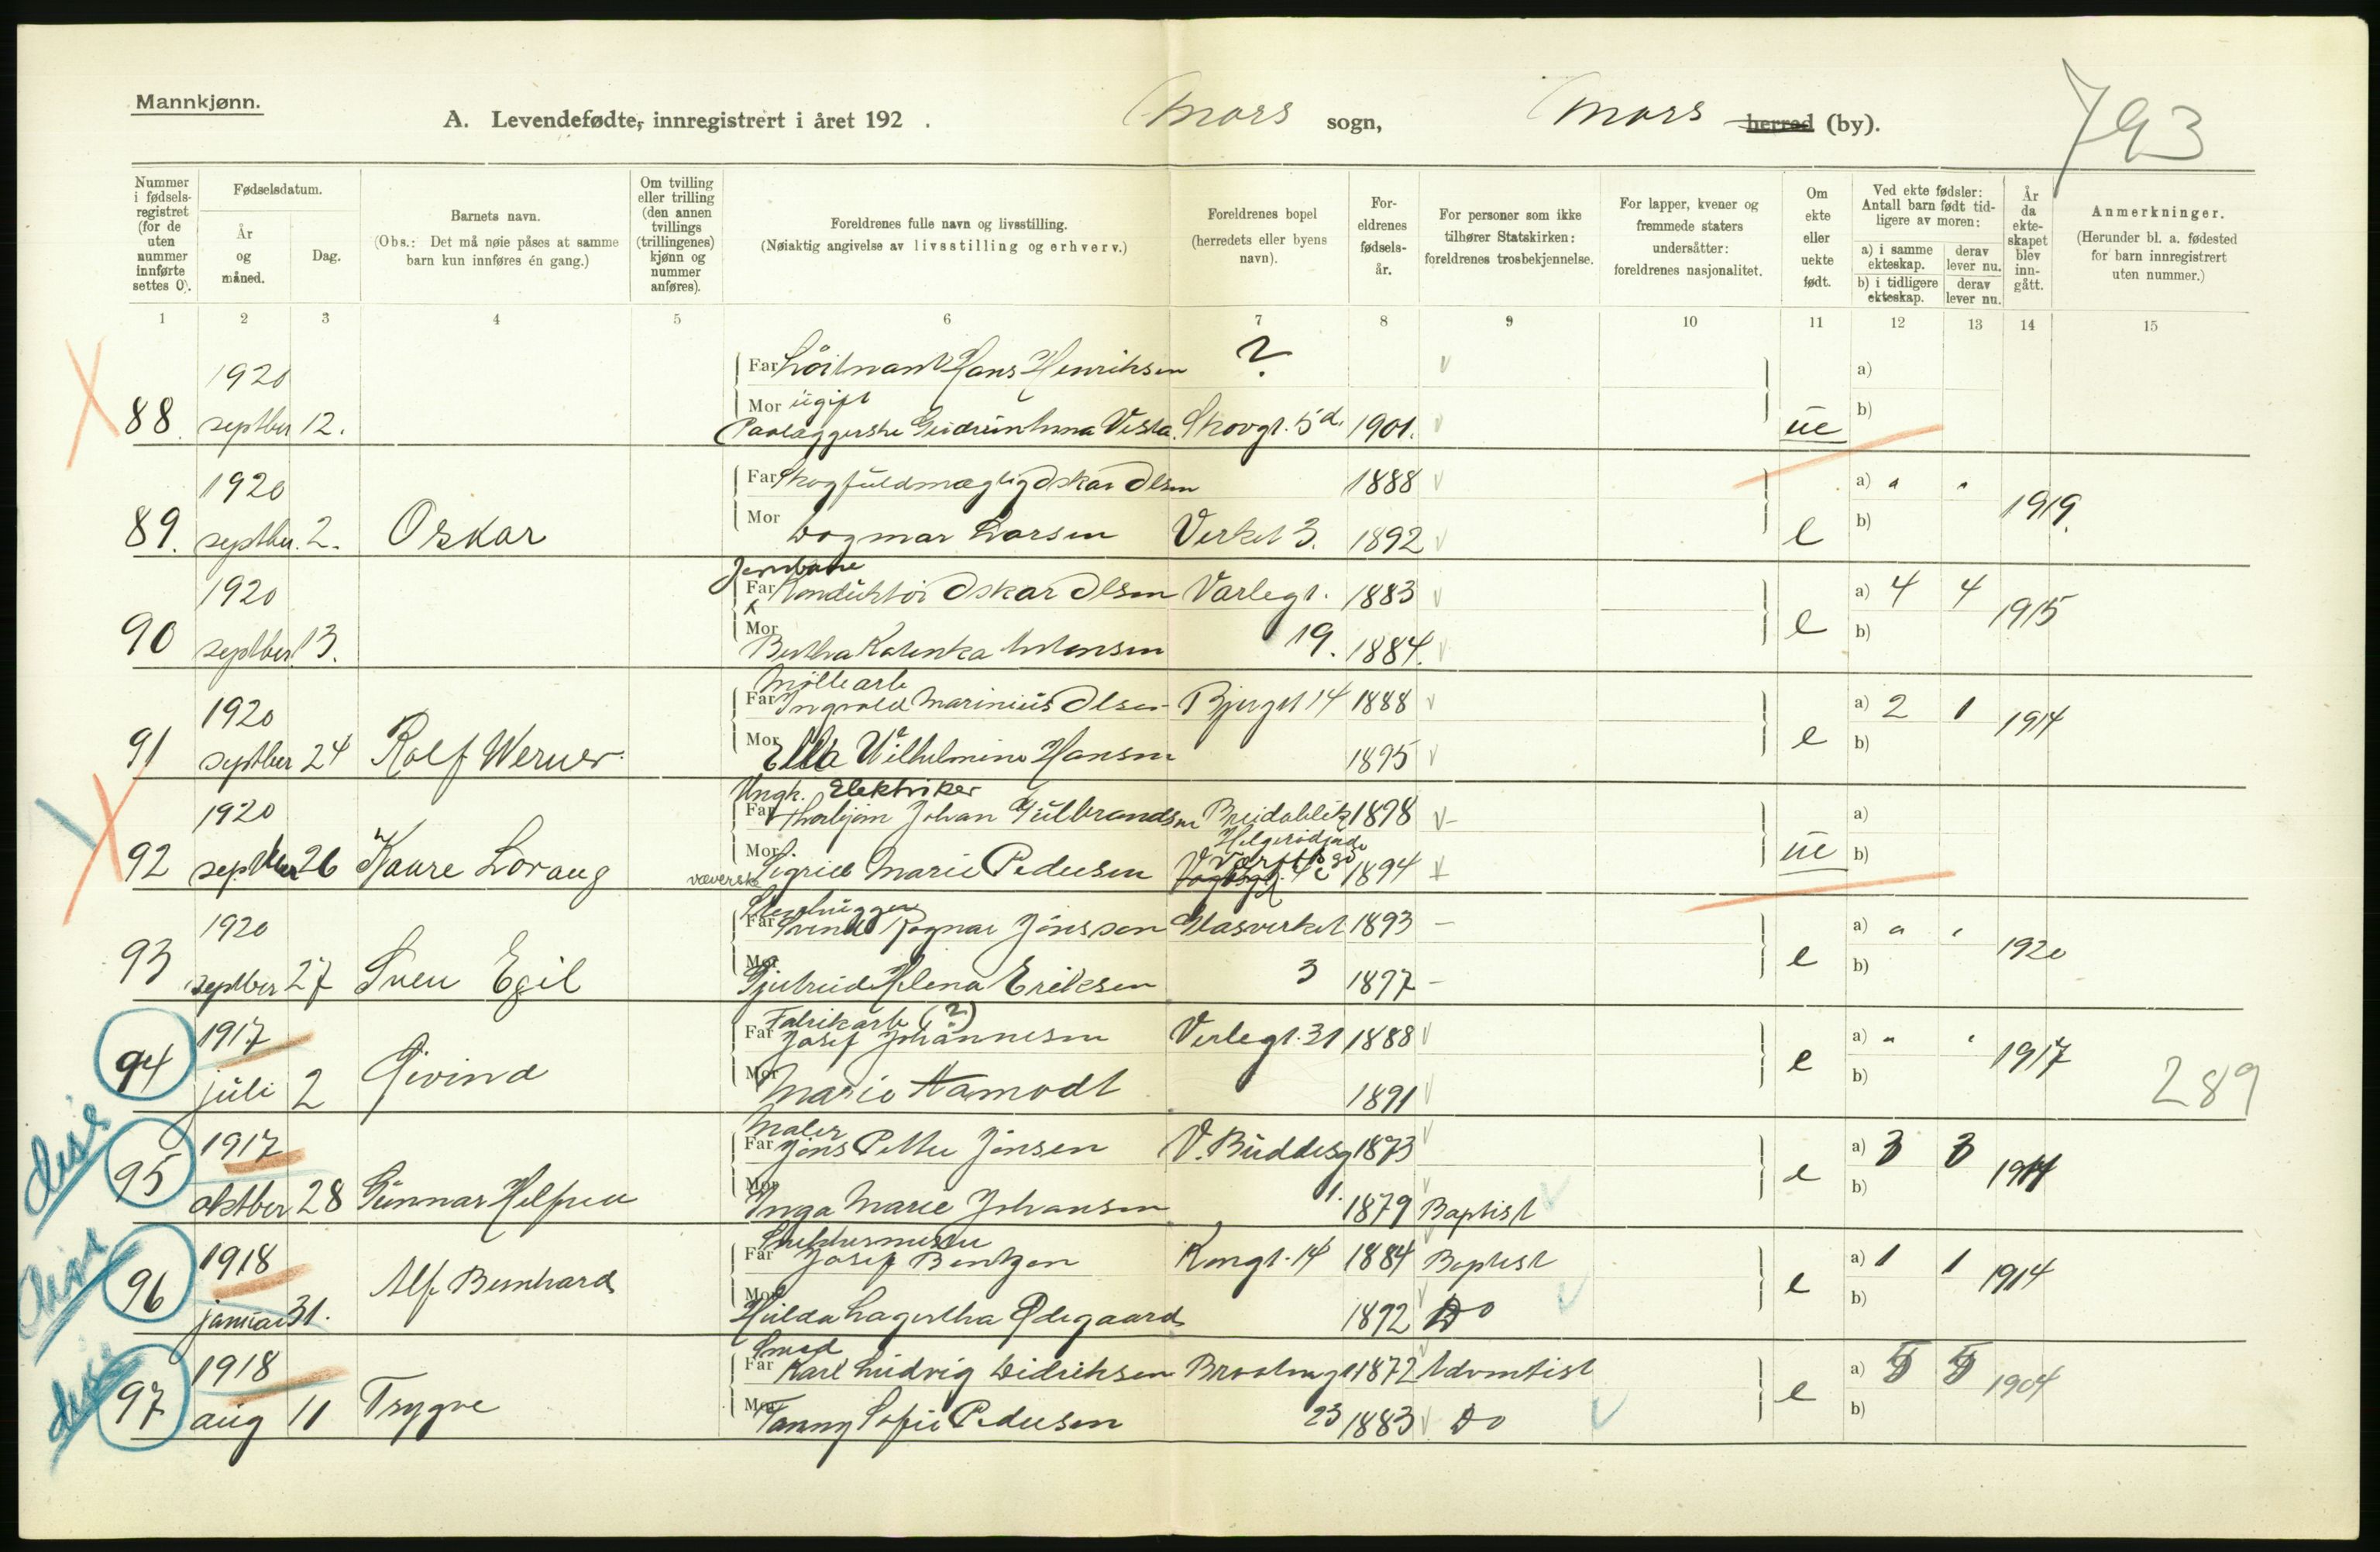 Mannkjønn.
A. Levendefødte, innregistrert i året 192 .
Moss sogn,
Moss herred (by).
793
Nummer i fødsels-registret (for de uten nummer innførte settes 0).
Fødselsdatum.
År og måned.
Dag.
Barnets navn.
(Obs.: Det må nøie påses at samme barn kun innføres én gang.)
Om tvilling eller trilling (den annen tvillings (trillingenes) kjønn og nummer anføres).
Foreldrenes fulle navn og livsstilling.
(Nøiaktig angivelse av livsstilling og erhverv.)
Foreldrenes bopel (herredets eller byens navn).
For-eldrenes fødsels-år.
For personer som ikke tilhører Statskirken: foreldrenes trosbekjennelse.
For lapper, kvener og fremmede staters undersåtter: foreldrenes nasjonalitet.
Om ekte eller uekte født.
Ved ekte fødsler: Antall barn født tid-ligere av moren:
a) i samme ekteskap.
derav lever nu.
b) i tidligere ekteskap.
derav lever nu.
År da ekte-skapet blev inn-gått.
Anmerkninger.
(Herunder bl. a. fødested for barn innregistrert uten nummer.)
1 2 3 4 5 6 7 8 9 10 11 12 13 14 15
1920 Far Løitnant Hans Henriksen ? a)
Mor ugift b)
88. septber 12. Vesta Skovgt. 5d. 1901. ue
1920 Far Oskar Olsen 1888 a) " "
89. septber. 2. Oskar Mor Dagmar Larsen Verket 3. 1892 e b) 1919.
Jernbane
1920 Far Konduktør Oskar Olsen Varlegt. 1883 a) 4 4
90 septber. 13. Mor Bertha Karenka 19. 1884. e b) 1915
Møllearb
1920 Far Ingvald Marinius Olsen Bjerget 14 1888 a) 2 1
91 septber 24 Rolf Werner Mor Ella Wilhelmine Hansen 1895 e b) 1914
Ungk. Elektriker
1920 Far Thorbjørn Johan Gulbrandsen Breidablik 1898 a)
92 septber 26 Kaare Lorang Mor væverske Sigrid Marie Pedersen 1894 ue b)
1920 Far Ragnar Jönsson Glasverket 1893 - a) " "
93 septber 27 Sven Egil Mor Gjertrud Helena Eriksen 3 1897 - e b) 1920
Fabrikarb (?)
1917 Far Josef Johannesen Verlegt. 31 1888 a) " "
94 juli 2 Øivind Mor Marie Aamodt 1891 e b) 1917
289
Maler
1917 Far Jöns Petter Jönsen V. Buddesg 1873 a) 3 3
95 oktber 28 Gunnar Mor Inga Marie Johansen 1. 1879 Baptist e b)
1918 Far Josef Bentzen Kongt. 14 1884 Baptist a) 1 1
96 januar 31. Alf Bernhard Mor Hulda Lagertha Ødegaard 1892 Do e b) 1914
Smed
1918 Far Karl Ludvig Didriksen 1872 Adventist a) 5 5
97 aug 11 Trygve Mor Fanny Sofie Pedersen 23 1883 Do e b) 1904
diss
diss
diss